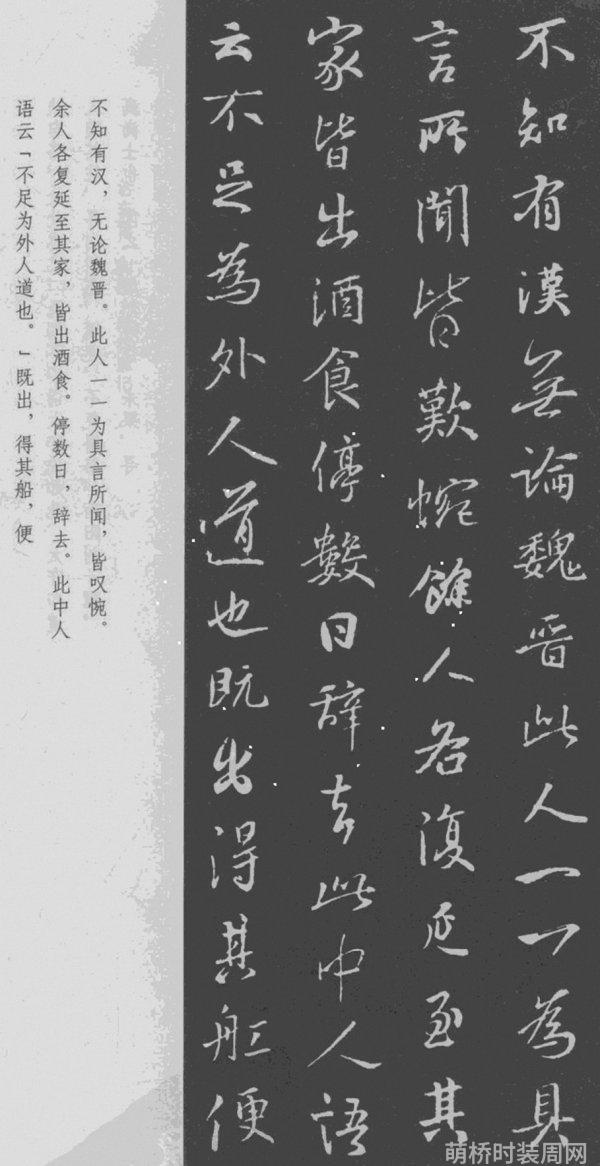 不知有漢無論魏晋此人一一為具
言所聞皆歎惋餘人各復延至其
家皆出酒食停數日辞去此中人語
云不足為外人道也既出得其舡便
不知有汉，无论魏晋。此人一一为具言所闻，皆叹惋。
余人各复延至其家，皆出酒食。停数日，辞去。此中人
语云「不足为外人道也。」既出，得其船，便
萌桥时装周网